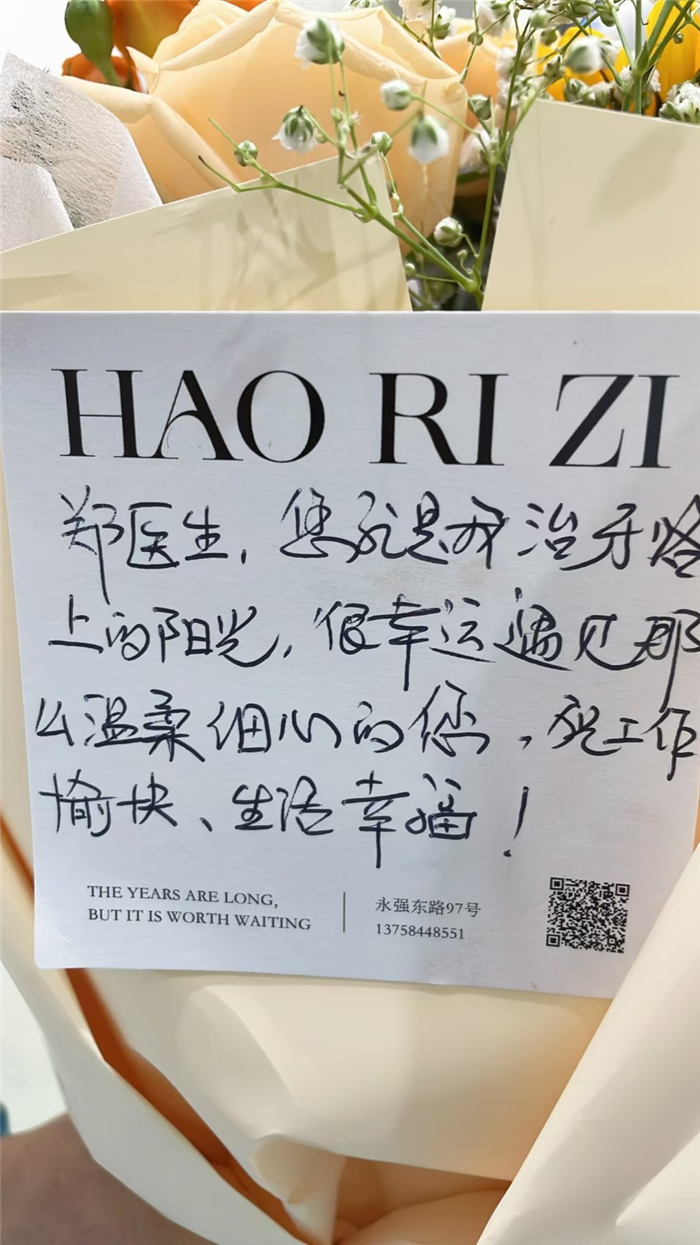 HAO RI ZI
郑医生,您就是我治牙路
上的阳光,很幸运遇见那
么温柔细心的您,祝工作
愉快、生活幸福!
THE YEARS ARE LONG,
BUT IT IS WORTH WAITING
永强东路97号
13758448551